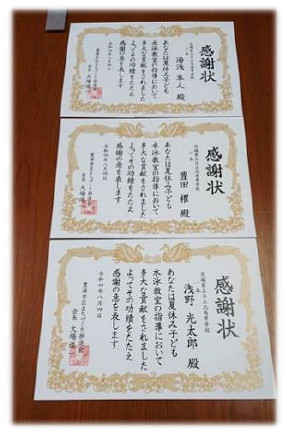 感謝状
湯浅 隼人 殿
あなたは夏休み子ども
水泳教室の指導において
多大な貢献をされました
よってその功績をたたえ
感謝の意を表します
令和四年八月四日
感謝状
豊田 櫂 殿
あなたは夏休み子ども
水泳教室の指導において
多大な貢献をされました
よってその功績をたたえ
感謝の意を表します
令和四年八月四日
感謝状
浅野 光太郎 殿
あなたは夏休み子ども
水泳教室の指導において
多大な貢献をされました
よってその功績をたたえ
感謝の意を表します
令和四年八月四日